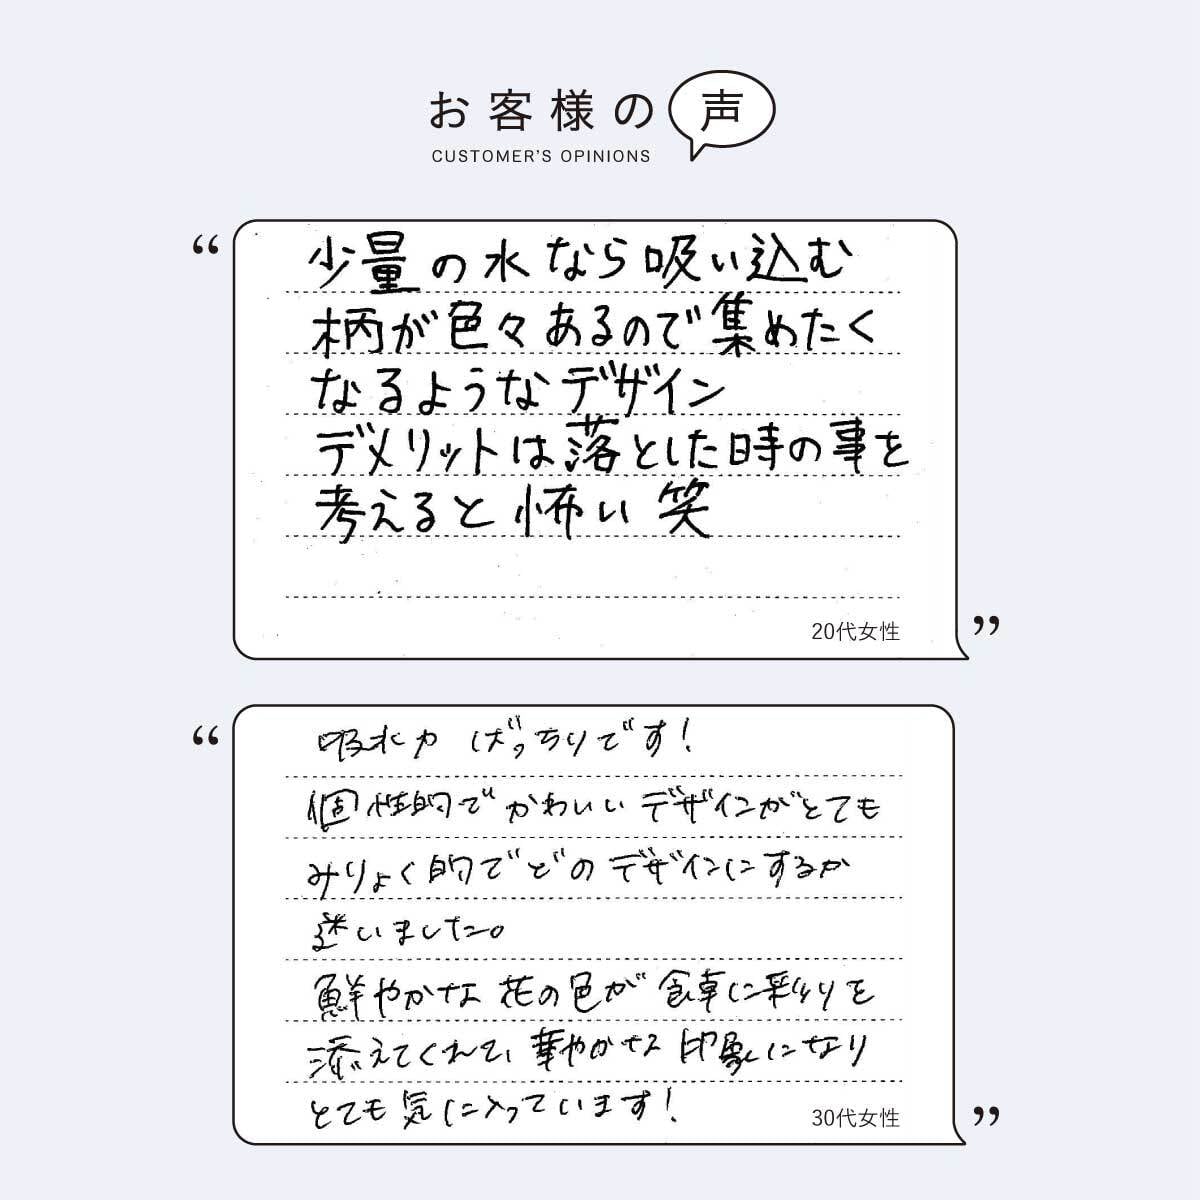 お客様の声
CUSTOMER'S OPINIONS
“
少量の水なら吸い込む
柄が色々あるので集めたく
なるようなデザイン
デメリットは落とした時の事を
考えると怖い 笑
20代女性
”
“
吸水力 ばっちりです！
個性的でかわいいデザインがとても
みりょく的でどのデザインにするか
迷いました。
鮮やかな花の色が食卓に彩りを
添えてくれて、華やかな印象になり
とても気に入っています！
30代女性
”